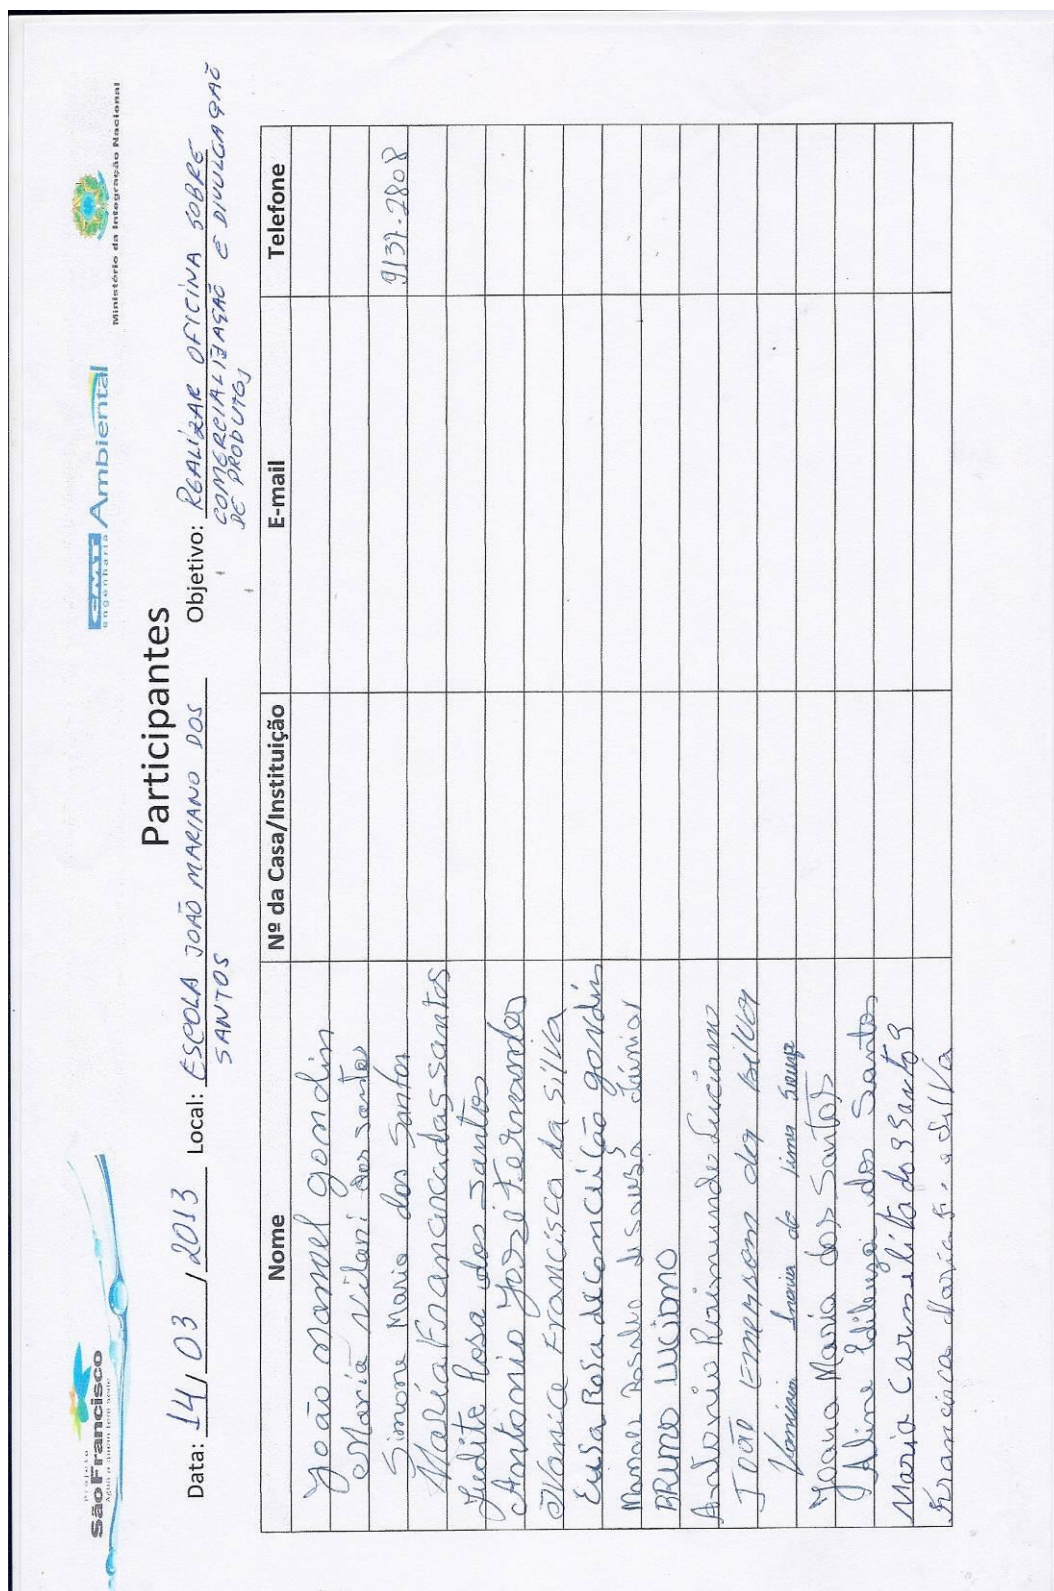 Projeto
São Francisco
Água a quem tem sede
CMT Ambiental
engenharia
Ministério da Integração Nacional
Participantes
Data: 14/03/2013 Local: ESCOLA JOÃO MARIANO DOS Objetivo: REALIZAR OFICINA SOBRE
SANTOS COMERCIALIZAÇÃO E DIVULGAÇÃO
DE PRODUTOS
Nome Nº da Casa/Instituição E-mail Telefone
João manoel gondin
Maria Vilani dos santos
Simone Maria dos Santos 9137-2808
Maria Francincadas santos
Judite Rosa dos Santos
Antonio José Fernandes
Vanice Francisca da Silva
Eusa Rosa deconceição gondin
Manoel Rosalvo de sousa Júnior
BRUNO LUCIANO
Antonio Raimundo Luciano
João Emerson da Silva
de lima
Joana Maria dos Santos
Aline Edileuza dos Santos
Maria Carmelita dos Santos
Francisca Maria Silva